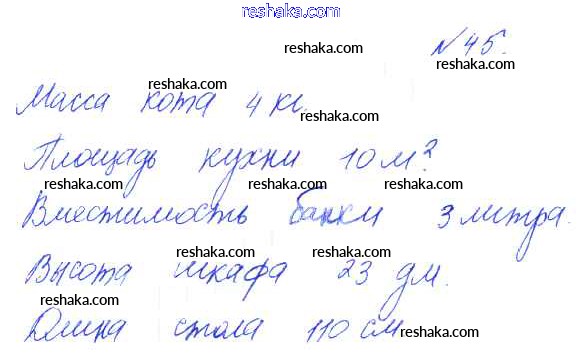 reshaka.com
reshaka.com
№ 45.
reshaka.com
reshaka.com
Масса кота 4 кг.
reshaka.com
reshaka.com
Площадь кухни 10 м².
reshaka.com reshaka.com reshaka.com
Вместимость банки 3 литра.
reshaka.com reshaka.com
Высота шкафа 23 дм.
reshaka.com reshaka.com
Длина стола 110 см
reshaka.com
reshaka.com